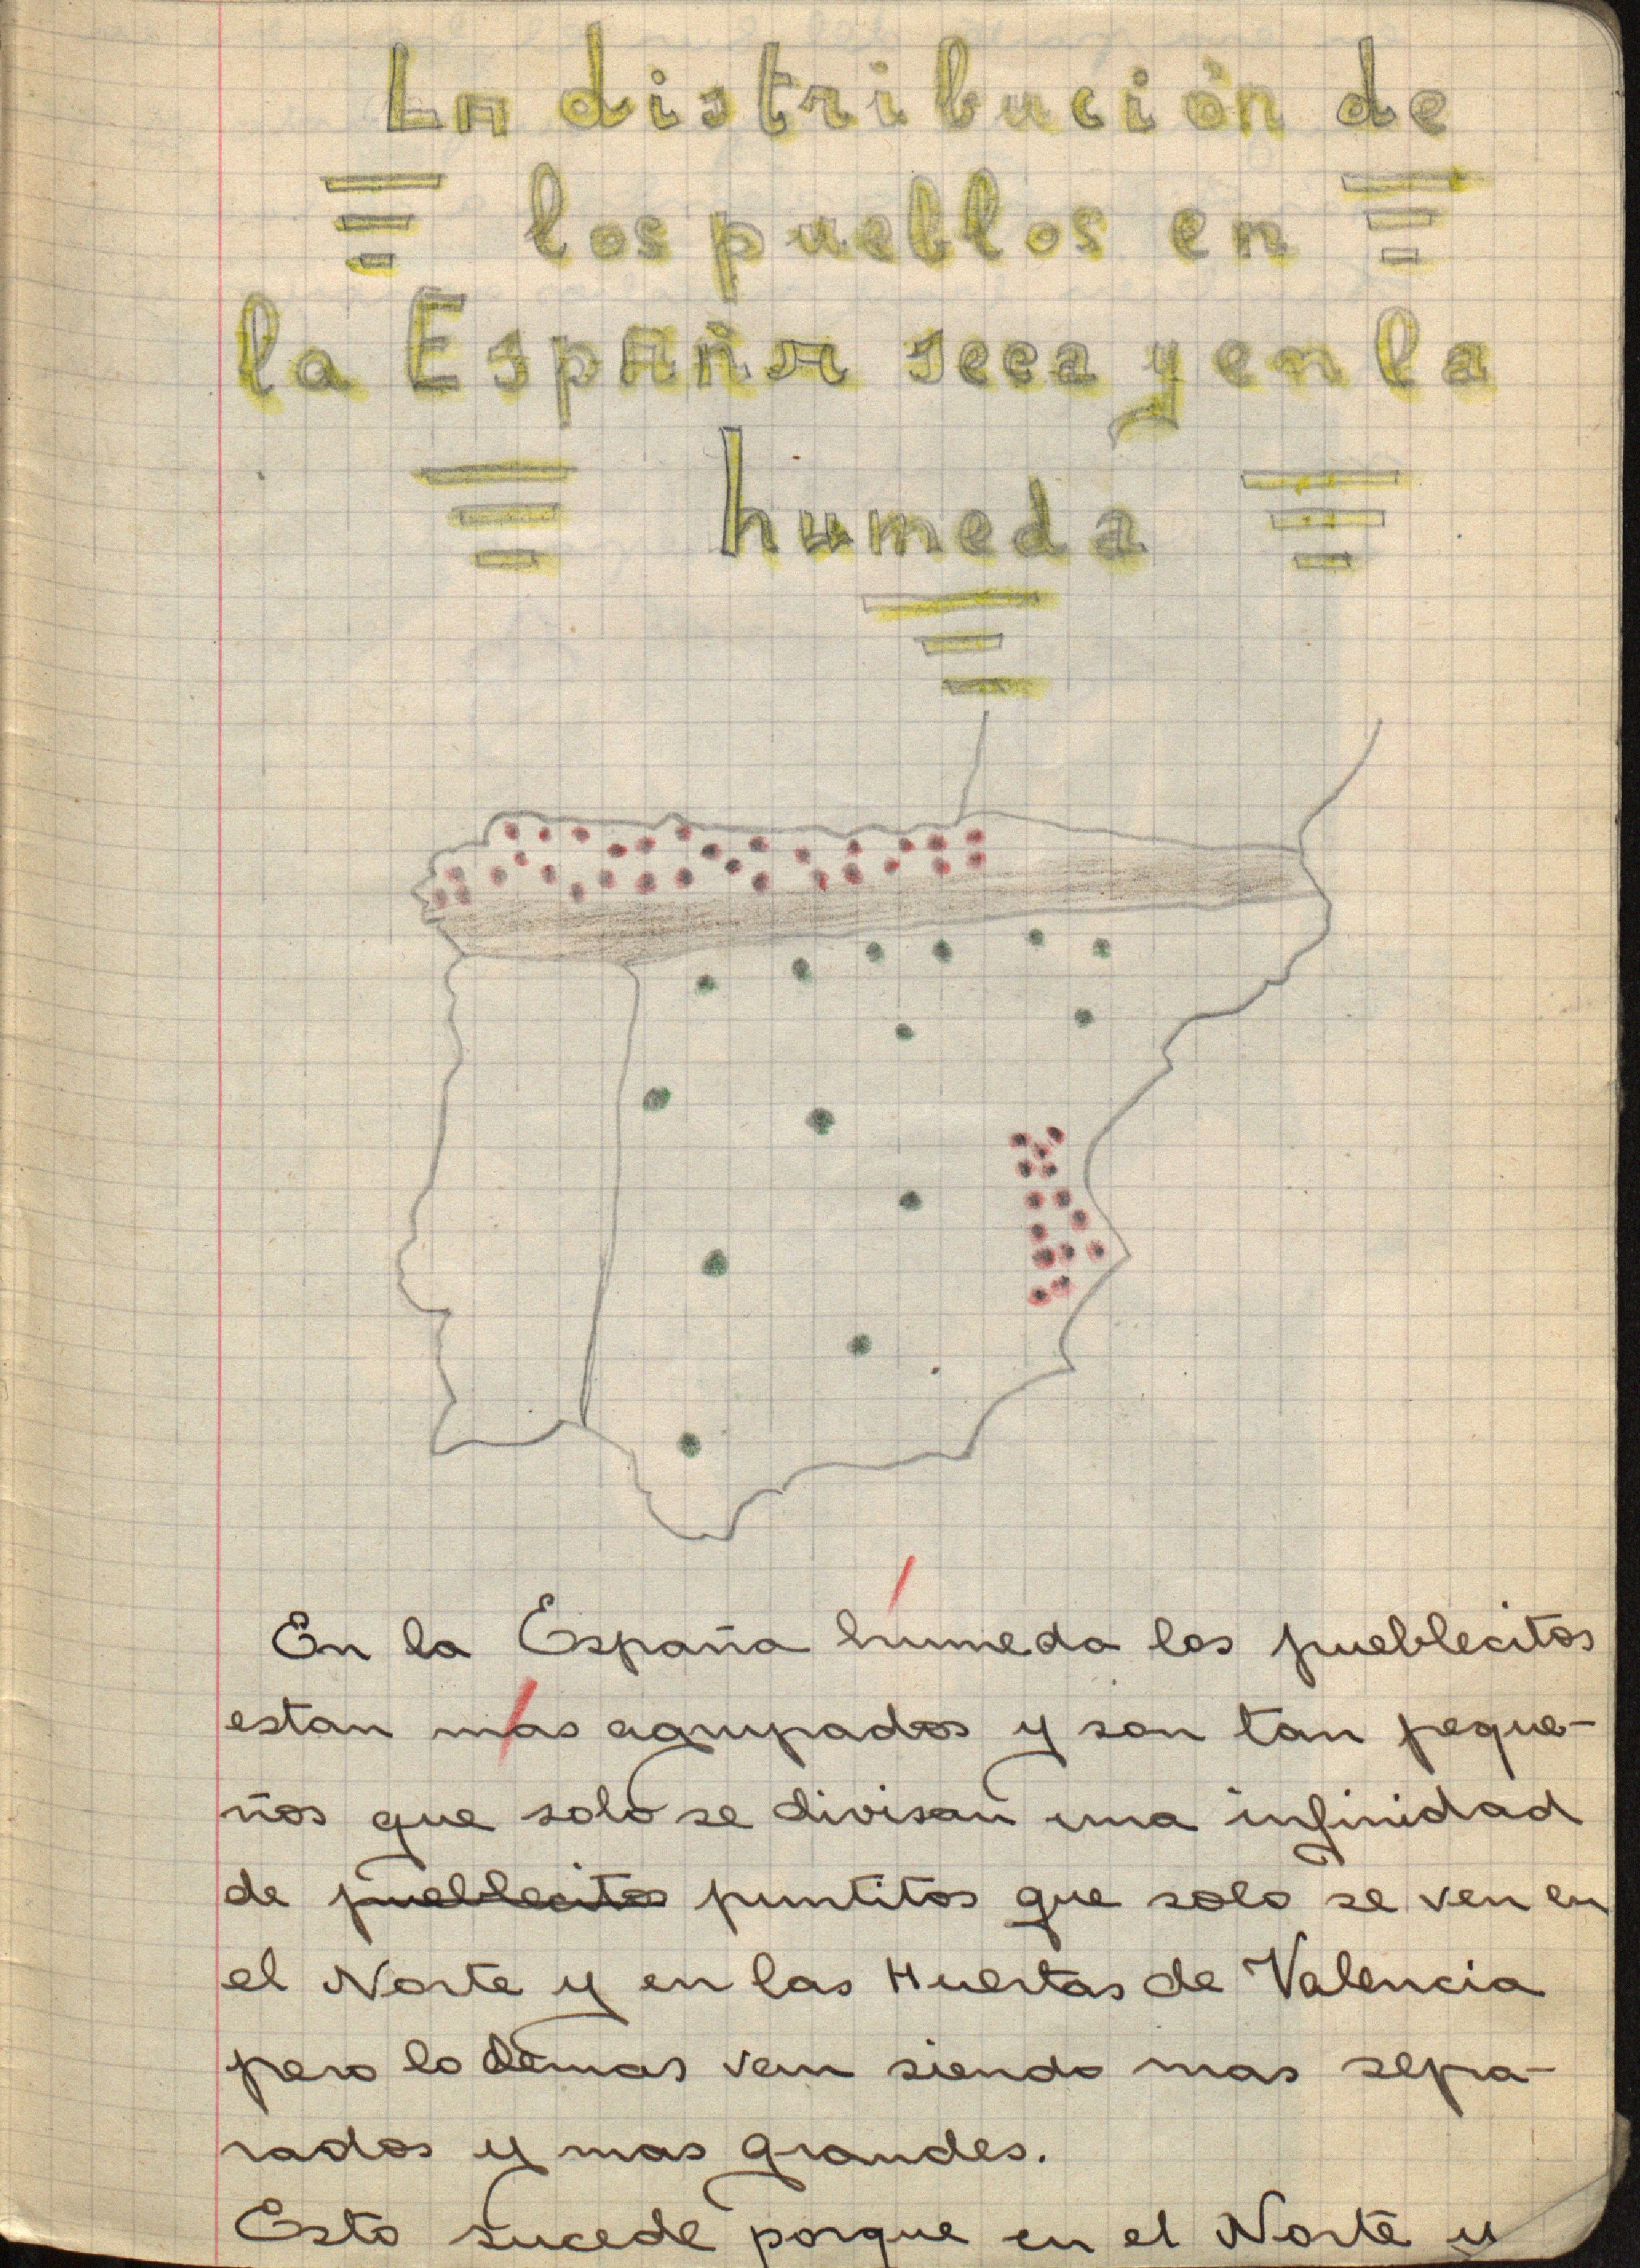 La distribución de
los pueblos en
la España seca y en la
humeda
En la España húmeda los pueblecitos
estan más agrupados y son tan peque-
ños que solo se divisan una infinidad
de pueblecitos puntitos que solo se ven en
el Norte y en las Huertas de Valencia
pero lo demas van siendo mas sepa-
rados y mas grandes.
Esto sucede porque en el Norte y